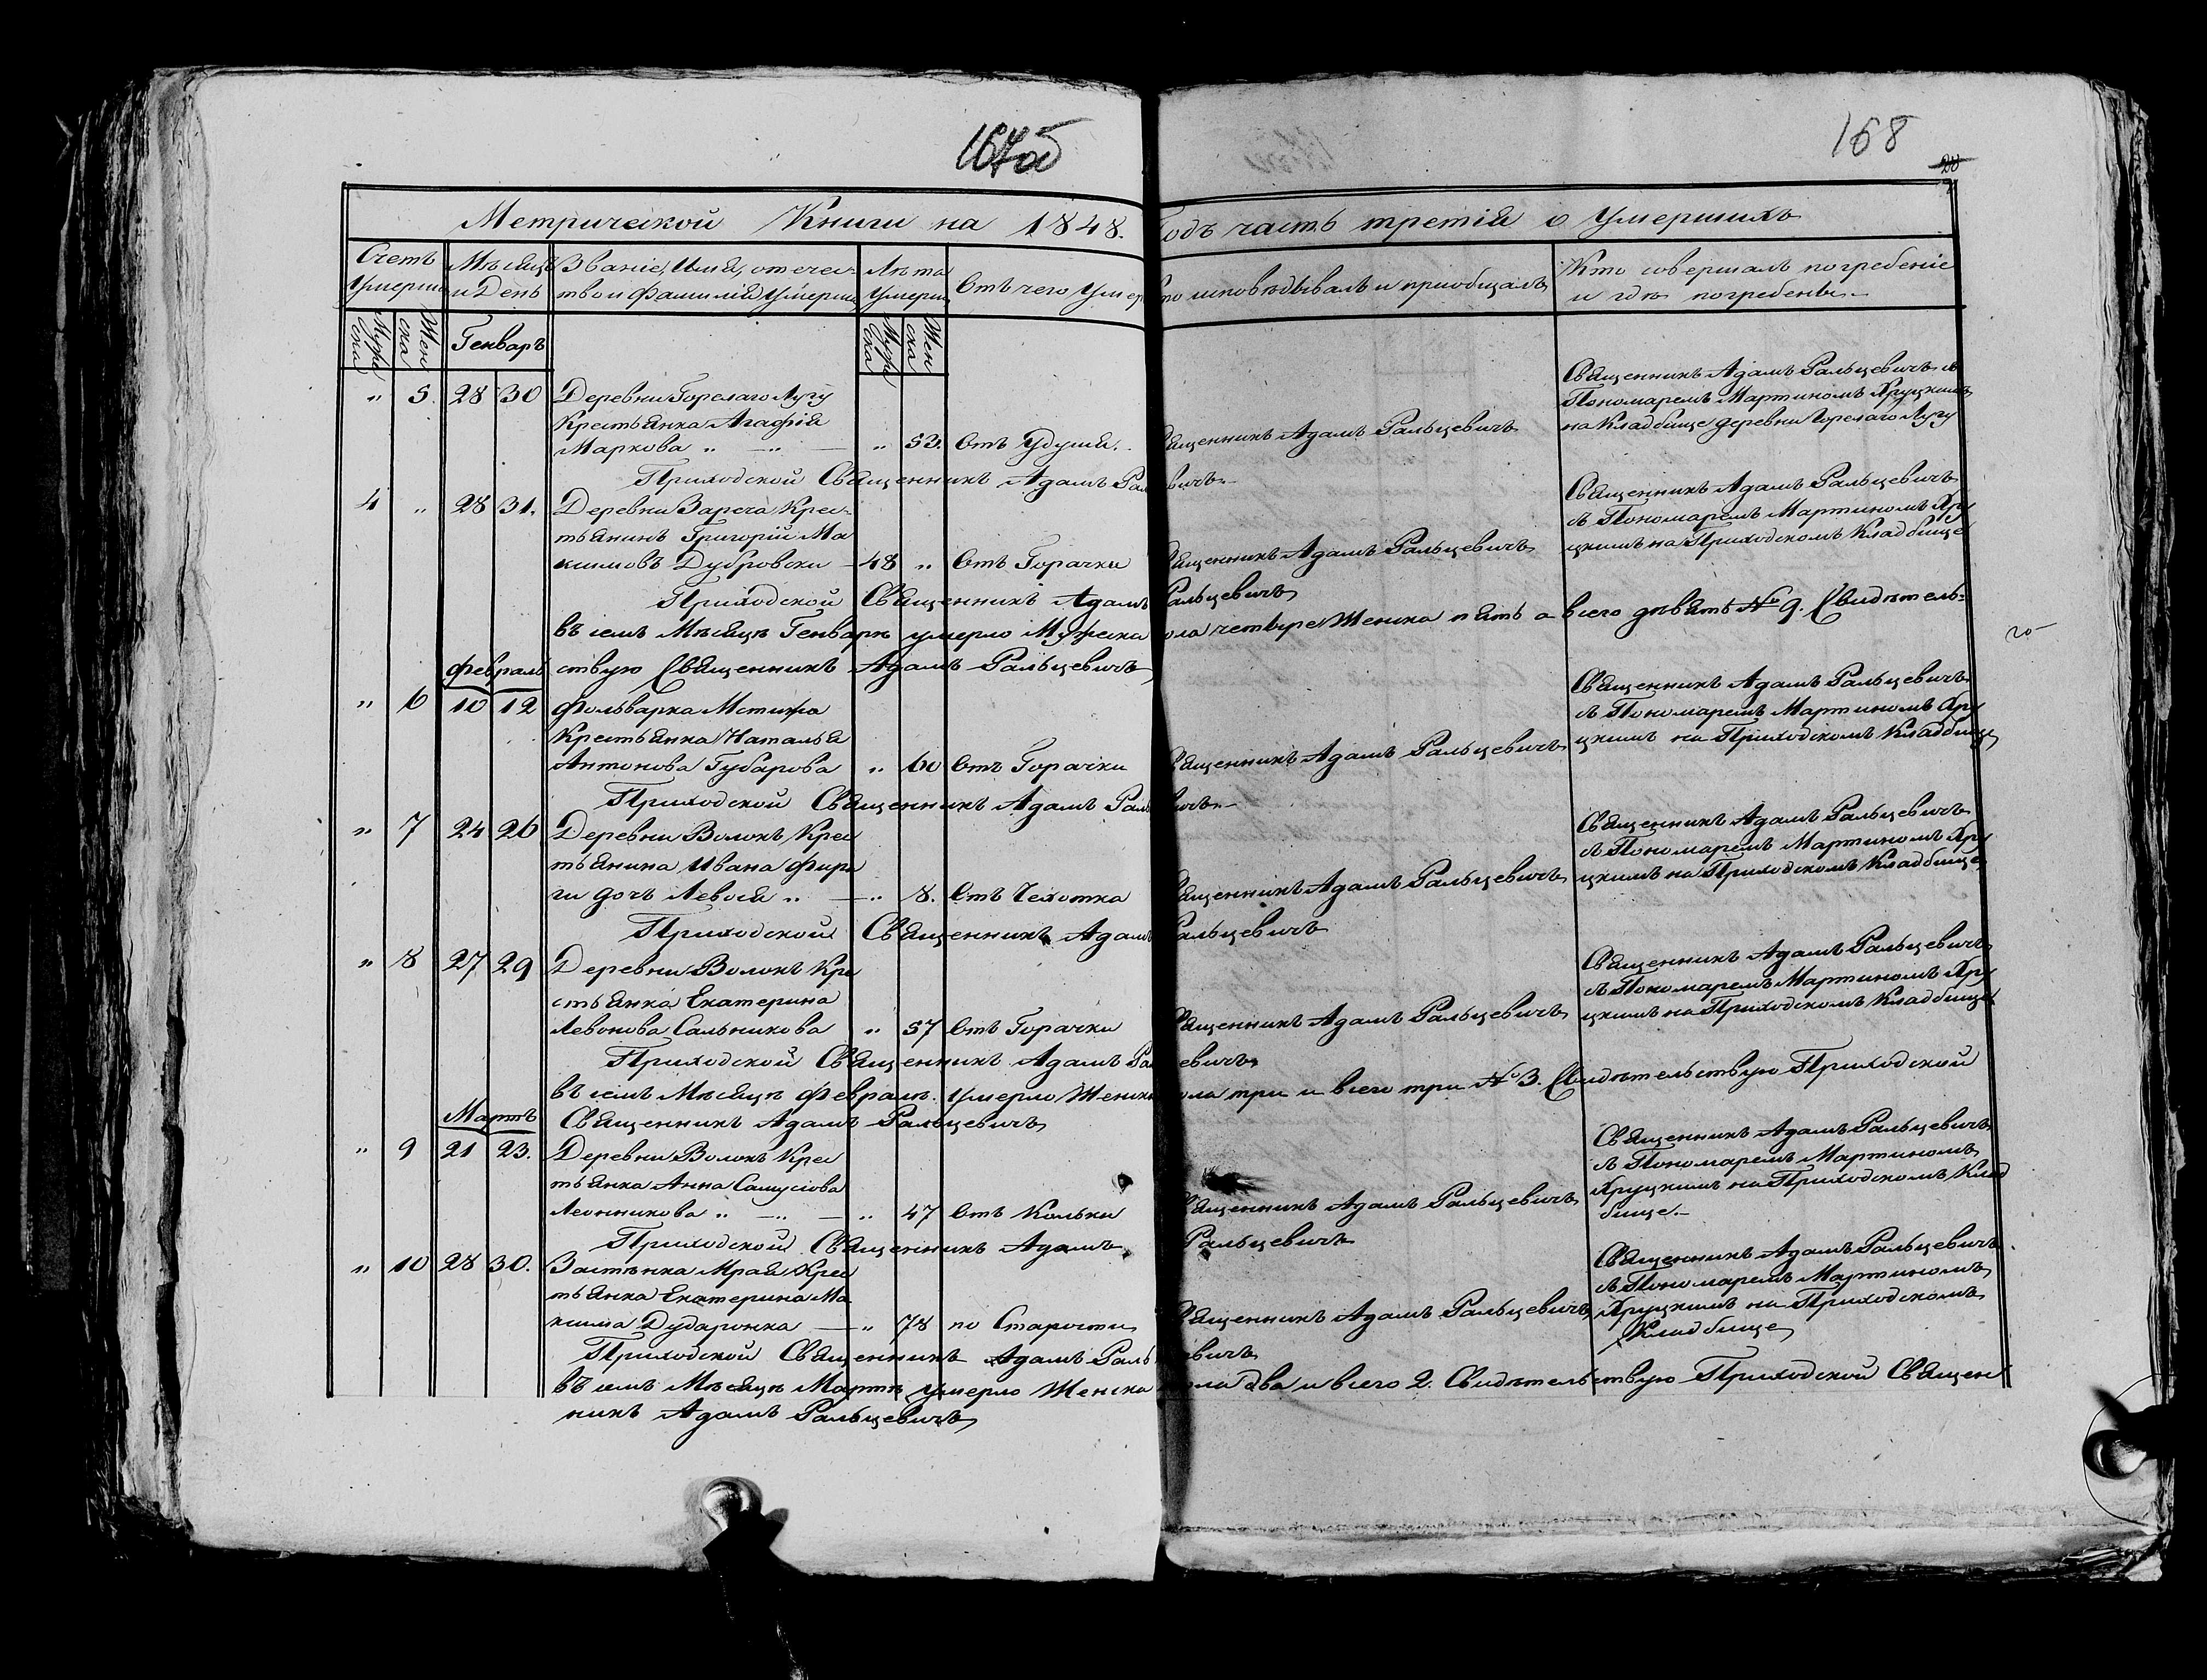 167об
168
Метрической Книги на 1848. Годъ часть третія о Умершихъ
Счетъ умерши
Мѣсяцъ и День
Званіе, Имя, отечес-
тво и Фамилія Умерши
Лѣта Умерши
Отъ чего умер
кто исповѣдывалъ и приобщалъ
Кто совершалъ погребеніе
и гдѣ погребены
Муже
ска
Жен
ска
Генварь
Муже
ска
Жен
ска
" 5. 28 30 Деревни Горелаго Лугу
Крестьянка Агафія
Маркова " — " — " 53. Отъ Удушя. Священникъ Адамъ Ральцевичъ
Священникъ Адамъ Ральцевичъ съ
Пономаремъ Мартиномъ Хруцкимъ
на Кладбище деревни Горелаго Лугу
Приходской Священникъ Адамъ Ральцевичъ
4 " 28 31. Деревни Зареча Крес-
тьянинъ Григорій Ма
ксимовъ Дубровски — 48 " Отъ Горачки Священникъ Адамъ Ральцевичъ
Священникъ Адамъ Ральцевичъ
съ Пономаремъ Мартиномъ Хру
цкимъ на Приходскомъ Кладбище
Приходской Священникъ Адамъ Ральцевичъ
въ семъ Мѣсяцѣ Генварѣ умерло Мужеска пола четыре Женска пять а всего девять № 9. Свидѣтель-
Февраль ствую Священникъ Адамъ Ральцевичъ
" 6 10 12 Фольварка Мстижа
Крестьянка Наталья
Антонова Губарова " 60 Отъ Горачки Священникъ Адамъ Ральцевичъ
Священникъ Адамъ Ральцевичъ
съ Пономаремъ Мартиномъ Хру
цкимъ на Приходскомъ Кладбище
Приходской Священникъ Адамъ Ральцевичъ
" 7 24 26 Деревни Волокъ Крес
тьянина Ивана Фир
ги дочь Левося " — " 8. Отъ Чехотка Священникъ Адамъ Ральцевичъ
Священникъ Адамъ Ральцевичъ
съ Пономаремъ Мартиномъ Хру
цкимъ на Приходскомъ Кладбище
Приходской Священникъ Адамъ Ральцевичъ
" 8 27 29 Деревни Волокъ Кре
стьянка Екатерина
Левонова Сальникова " 57 Отъ Горачки Священникъ Адамъ Ральцевичъ
Священникъ Адамъ Ральцевичъ
съ Пономаремъ Мартиномъ Хру
цкимъ на Приходскомъ Кладбище
Приходской Священникъ Адамъ Ральцевичъ
въ семъ Мѣсяцѣ Февралѣ умерло Женска пола три и всего три № 3. Свидѣтельствую Приходской
Мартъ Священникъ Адамъ Ральцевичъ
" 9 21 23. Деревни Волокъ Крес
тьянка Анна Самусіова
Леонникова " — " — " 47 Отъ Кольки Священникъ Адамъ Ральцевичъ
Священникъ Адамъ Ральцевичъ
съ Пономаремъ Мартиномъ
Хруцкимъ на Приходскомъ Клад
бище.
Приходской Священникъ Адамъ Ральцевичъ
" 10 28 30. Застѣнка Мрая Крес
тьянка Екатерина Ма
ксима Дударонка — " 78 по Старости Священникъ Адамъ Ральцевичъ
Священникъ Адамъ Ральцевичъ
съ Пономаремъ Мартиномъ
Хруцкимъ на Приходскомъ
Кладбище
Приходской Священникъ Адамъ Ральцевичъ
въ семъ Мѣсяцѣ Мартѣ умерло Женска пола два и всего 2. Свидѣтельствую Приходской Священ
никъ Адамъ Ральцевичъ